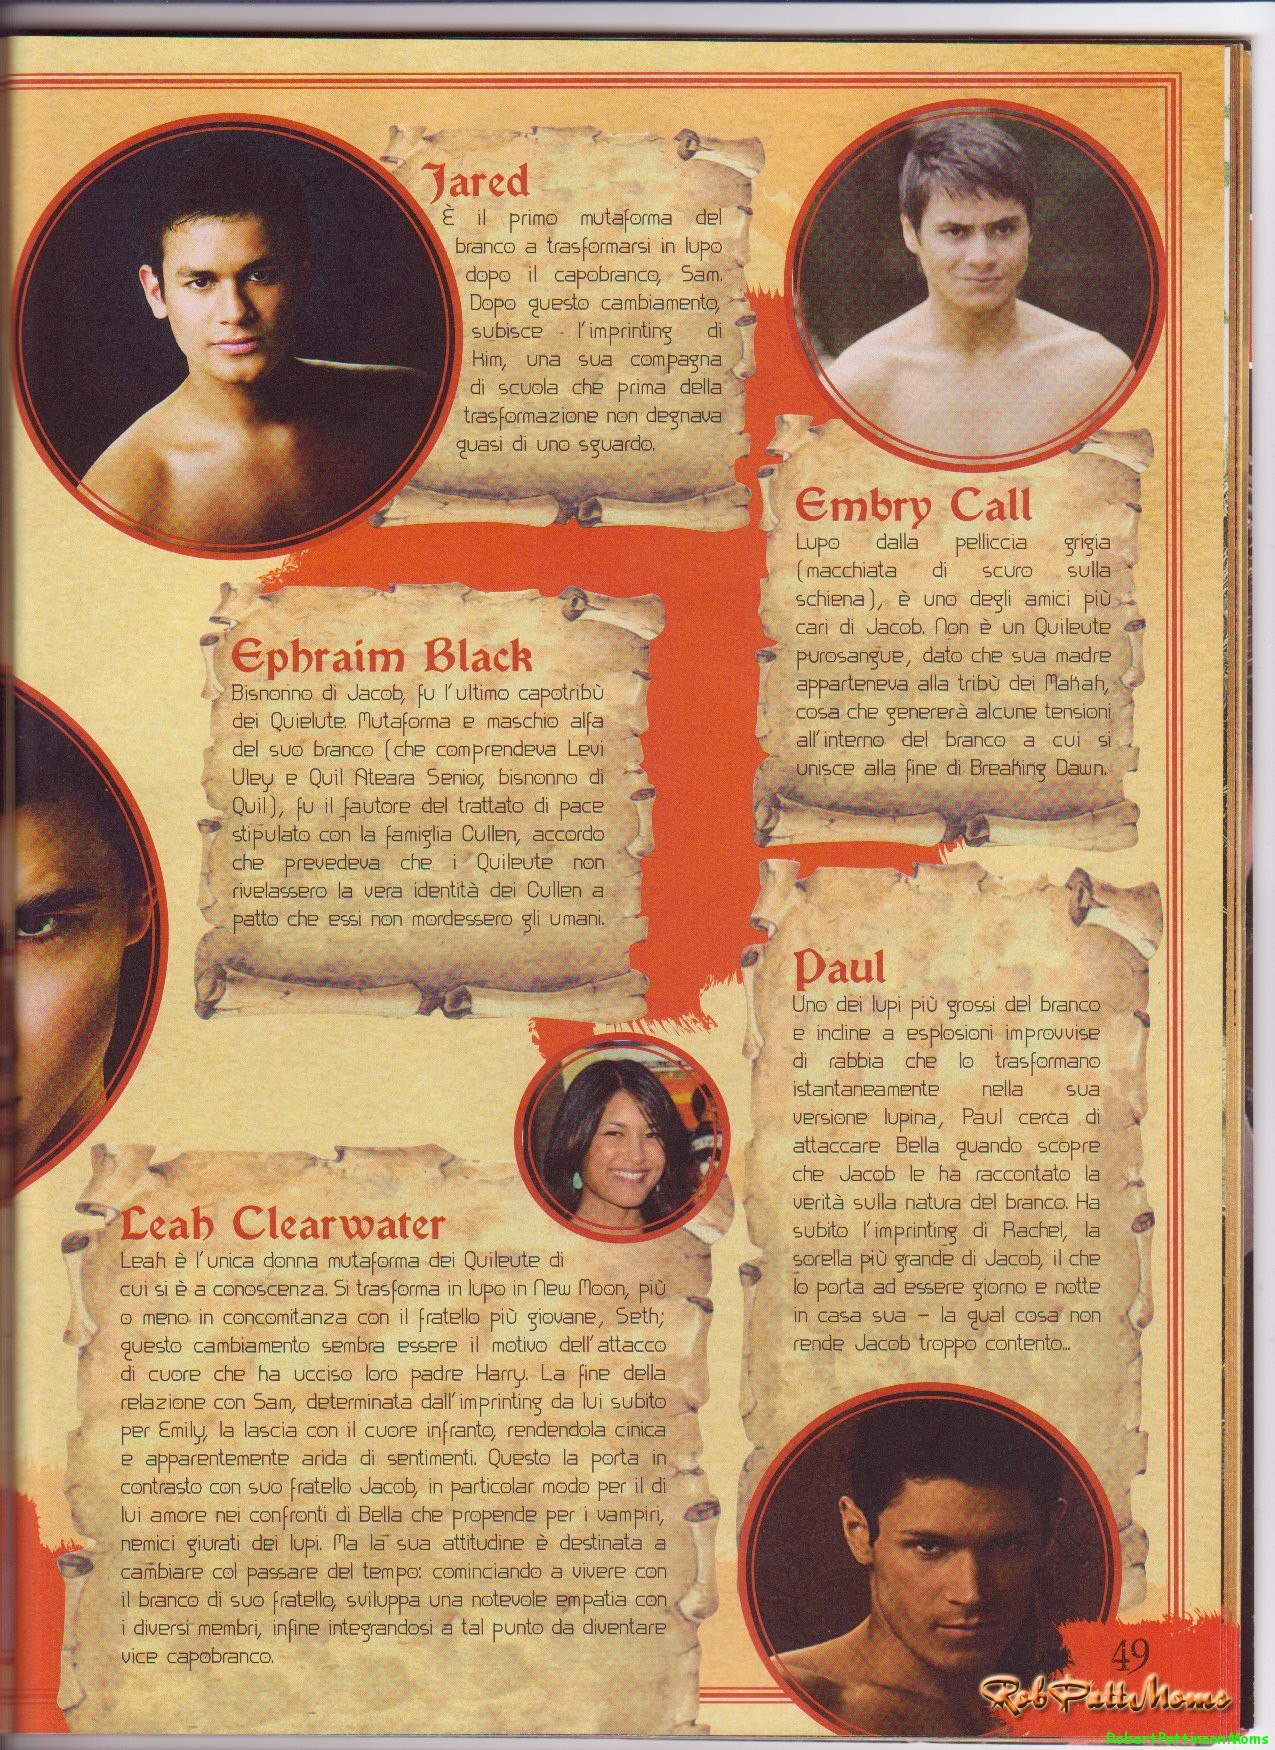 Jared
È il primo mutaforma del
branco a trasformarsi in lupo
dopo il capobranco, Sam.
Dopo questo cambiamento,
subisce l'imprinting di
Kim, una sua compagna
di scuola che prima della
trasformazione non degnava
quasi di uno sguardo.
Embry Call
Lupo dalla pelliccia grigia
(macchiata di scuro sulla
schiena), è uno degli amici più
cari di Jacob. Non è un Quileute
purosangue, dato che sua madre
apparteneva alla tribù dei Makah,
cosa che genererà alcune tensioni
all'interno del branco a cui si
unisce alla fine di Breaking Dawn.
Ephraim Black
Bisnonno di Jacob, fu l'ultimo capotribù
dei Quielute. Mutaforma e maschio alfa
del suo branco (che comprendeva Levi
Uley e Quil Ateara Senior, bisnonno di
Quil), fu il fautore del trattato di pace
stipulato con la famiglia Cullen, accordo
che prevedeva che i Quileute non
rivelassero la vera identità dei Cullen a
patto che essi non mordessero gli umani.
Paul
Uno dei lupi più grossi del branco
e incline a esplosioni improvvise
di rabbia che lo trasformano
istantaneamente nella sua
versione lupina, Paul cerca di
attaccare Bella quando scopre
che Jacob le ha raccontato la
verità sulla natura del branco. Ha
subito l'imprinting di Rachel, la
sorella più grande di Jacob, il che
lo porta ad essere giorno e notte
in casa sua – la qual cosa non
rende Jacob troppo contento...
Leah Clearwater
Leah è l'unica donna mutaforma dei Quileute di
cui si è a conoscenza. Si trasforma in lupo in New Moon, più
o meno in concomitanza con il fratello più giovane, Seth;
questo cambiamento sembra essere il motivo dell'attacco
di cuore che ha ucciso loro padre Harry. La fine della
relazione con Sam, determinata dall'imprinting da lui subito
per Emily, la lascia con il cuore infranto, rendendola cinica
e apparentemente arida di sentimenti. Questo la porta in
contrasto con suo fratello Jacob, in particolar modo per il di
lui amore nei confronti di Bella che propende per i vampiri,
nemici giurati dei lupi. Ma la sua attitudine è destinata a
cambiare col passare del tempo: cominciando a vivere con
il branco di suo fratello, sviluppa una notevole empatia con
i diversi membri, infine integrandosi a tal punto da diventare
vice capobranco.
49
RobPattMoms
RobertPattinsonMoms